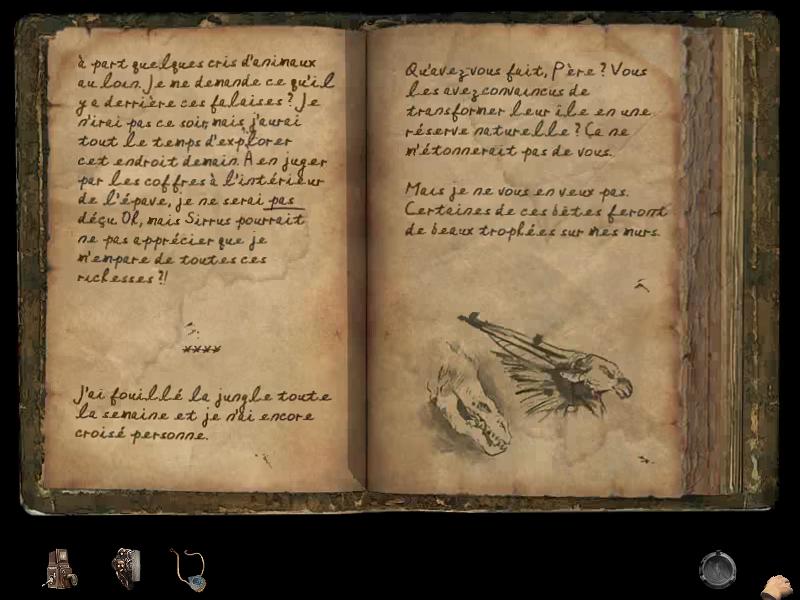 à part quelques cris d'animaux
au loin. Je me demande ce qu'il
y a derrière ces falaises? Je
n'irai pas ce soir, mais j'aurai
tout le temps d'explorer
cet endroit demain. A en juger
par les coffres à l'intérieur
de l'épave, je ne serai pas
déçu. Oh, mais Sirrus pourrait
ne pas apprécier que je
m'empare de toutes ces
richesses?!
****
J'ai fouillé la jungle toute
la semaine et je n'ai encore
croisé personne.
Qu'avez-vous fait, Père? Vous
les avez convaincus de
transformer leur île en une
réserve naturelle? Ça ne
m'étonnerait pas de vous.
Mais je ne vous en veux pas.
Certaines de ces bêtes feront
de beaux trophées sur mes murs.